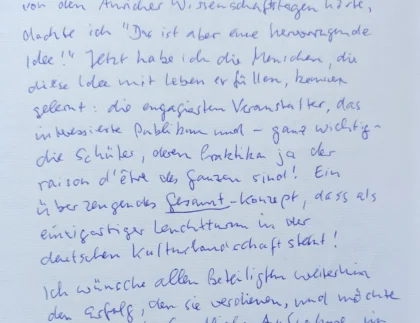 von den Auricher Wissenschaftstagen hörte,
dachte ich "Das ist aber eine hervorragende
Idee!" Jetzt habe ich die Menschen, die
diese Idee mit Leben erfüllen, kennen
gelernt: die engagierten Veranstalter, das
interessierte Publikum und - ganz wichtig -
die Schüler, deren Praktika ja der
raison d'être des Ganzen sind! Ein
überzeugendes Gesamt-Konzept, dass als
einzigartiger Leuchtturm in der
deutschen Kulturlandschaft steht!
Ich wünsche allen Beteiligten weiterhin
den Erfolg, den sie verdienen, und möchte